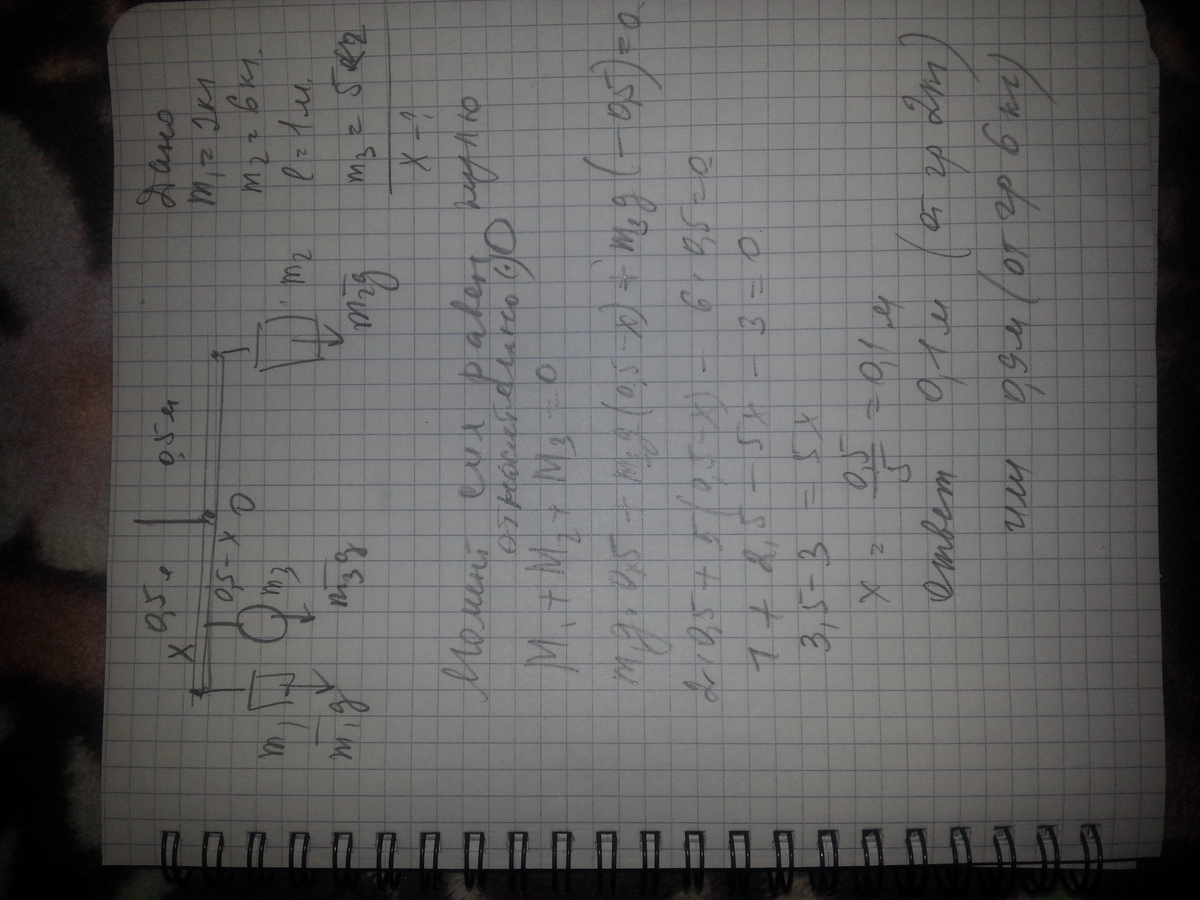 Дано
m₁ = 2кг
m₂ = 6кг.
l = 1м.
m₃ = 5 кг
x – ?
x 0,5м 0,5м
0,5-x O
m₁ m₃ m₂
m₁g m₃g m₂g
Момент сил равен нулю
относительно (·) O
M₁ + M₂ + M₃ = 0
m₁g · 0,5 + m₃g (0,5-x) + m₂g (-0,5) = 0
2·0,5 + 5(0,5-x) - 6·0,5 = 0
1 + 2,5 - 5x - 3 = 0.
3,5 - 3 = 5x
x = 0,5/5 = 0,1м
Ответ 0,1м (от гр 2кг)
или 0,9м (от гр 6 кг)